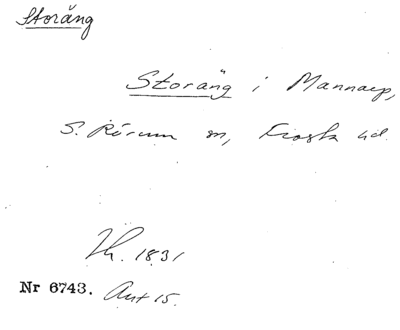 Storäng
Storäng i Mannarp,
S. Rörum sn, Frosta hd.
Th. 1831
Nr 6743. Avt 15.